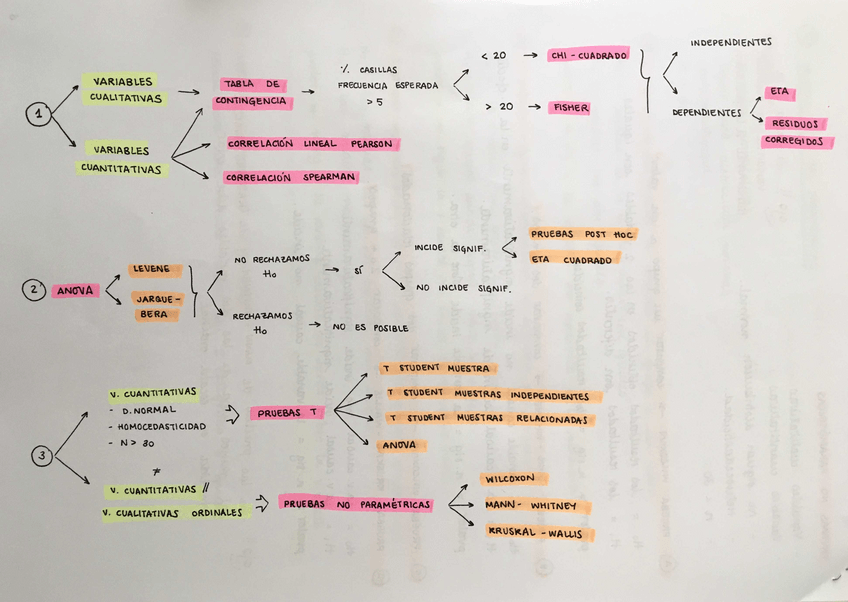 1
VARIABLES
CUALITATIVAS
TABLA DE
CONTINGENCIA
% CASILLAS
FRECUENCIA ESPERADA
> 5
< 20
CHI-CUADRADO
> 20
FISHER
INDEPENDIENTES
DEPENDIENTES
ETA
RESIDUOS
CORREGIDOS
VARIABLES
CUANTITATIVAS
CORRELACIÓN LINEAL PEARSON
CORRELACIÓN SPEARMAN
2
ANOVA
LEVENE
JARQUE-
BERA
NO RECHAZAMOS
Ho
SÍ
INCIDE SIGNIF.
PRUEBAS POST HOC
ETA CUADRADO
NO INCIDE SIGNIF.
RECHAZAMOS
Ho
NO ES POSIBLE
3
V. CUANTITATIVAS
- D. NORMAL
- HOMOCEDASTICIDAD
- N > 30
PRUEBAS T
T STUDENT MUESTRA
T STUDENT MUESTRAS INDEPENDIENTES
T STUDENT MUESTRAS RELACIONADAS
ANOVA
≠
V. CUANTITATIVAS //
V. CUALITATIVAS ORDINALES
PRUEBAS NO PARAMÉTRICAS
WILCOXON
MANN-WHITNEY
KRUSKAL-WALLIS